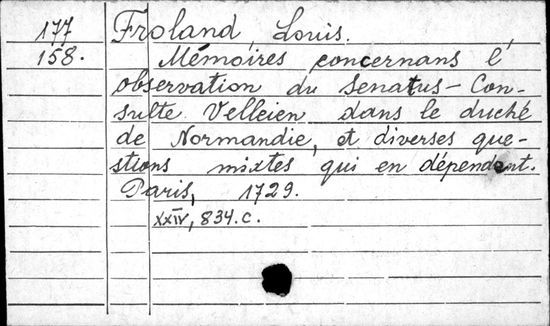 177 Froland, Louis.
158. Mémoires concernans l'
observation du Senatus-Con-
sulte Velleien dans le duché
de Normandie, et diverses que-
stions mixtes qui en dépendent.
Paris, 1729.
XXIV, 834.c.